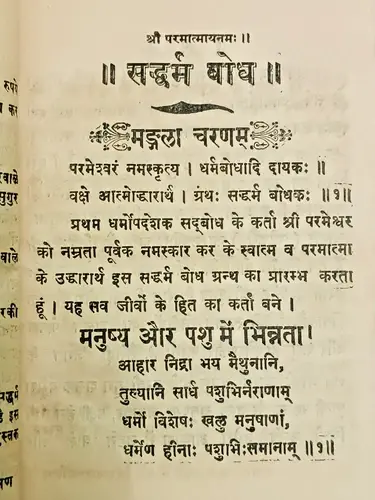 श्री परमात्मायनमः॥
॥ सद्धर्म बोध ॥
मङ्गला चरणम्
परमेश्वरं नमस्कृत्य। धर्मबोधादि दायकः॥
वक्षे आत्मोद्धारार्थ। ग्रंथः सद्धर्म बोधकः ॥१॥
प्रथम धर्मोपदेशक सद्बोध के कर्ता श्री परमेश्वर
को नम्रता पूर्वक नमस्कार कर के स्वात्म व परमात्मा
के उद्धारार्थ इस सद्धर्म बोध ग्रन्थ का प्रारम्भ करता
हूं। यह सव जीवों के हित का कर्ता वने।
मनुष्य और पशु में भिन्नता।
आहार निद्रा भय मैथुनानि,
तुल्यानि सार्ध पशुभिर्नराणाम्
धर्मो विशेषः खलु मनुषाणां,
धर्मेण हीनाः पशुभिःसमानाम् ॥१॥